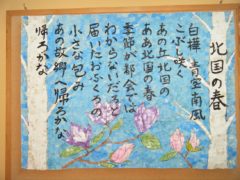 北国の春
白樺 青空 南風
こぶし咲く
あの丘 北国の
ああ北国の春
季節が都会では
わからないだろと
届いたおふくろの
小さな包み
あの故郷へ帰ろかな
帰ろかな